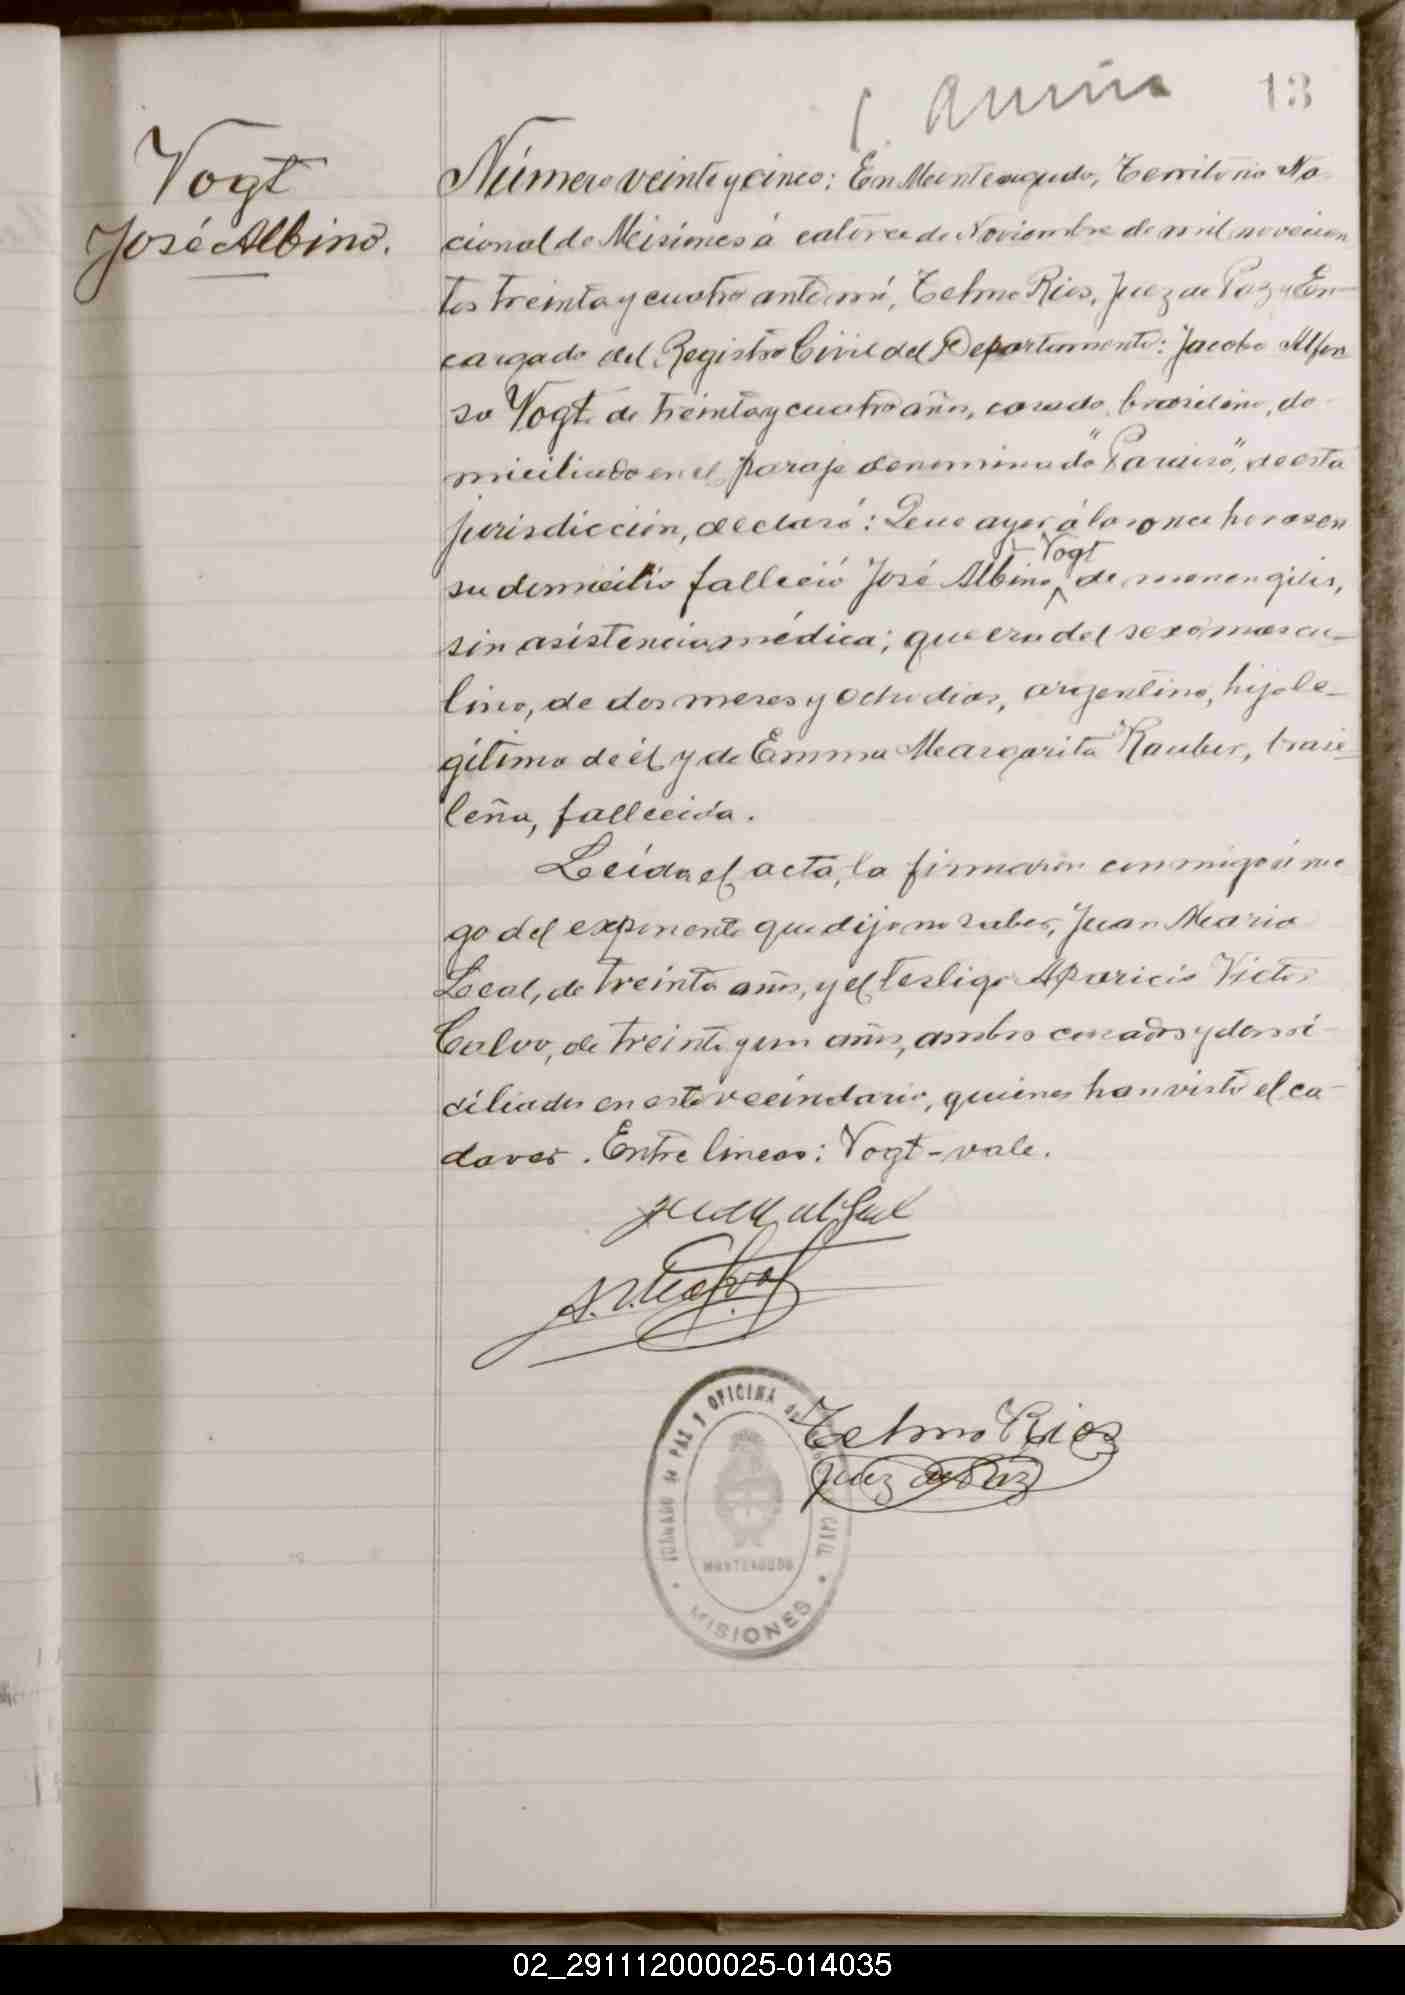 13
Vogt
José Albino.
Número veinte y cinco: En Monteagudo, Territorio Na-
cional de Misiones á catorce de Noviembre de mil novecien
tos treinta y cuatro ante mí, Telmo Rios, Juez de Paz y En-
cargado del Registro Civil del Departamento: Jacobo Alfon
so Vogt de treinta y cuatro años, casado, brasileño, do-
miciliado en el paraje denominado "Paraiso", de esta
jurisdicción, declaró: Que ayer á las once horas en
Vogt
su domicilio falleció José Albino, de menengitis,
sin asistencia médica; que era del sexo mascu-
lino, de dos meses y ocho dias, argentino, hijo le-
gítimo de él y de Emma Margarita Rauber, brasi-
leña, fallecida.
Leída el acta, la firmaron conmigo á rue
go del exponente que dijo no saber, Juan Mario
Leal, de treinta años, y el testigo Aparicio Victor
Calvo, de treinta y un años, ambos casados y domi-
ciliados en este vecindario, quienes han visto el ca-
daver. Entre lineas: Vogt-vale.
A. V. Calvo
Telmo Rios
Juez de Paz
JUZGADO de PAZ Y OFICINA de CIVIL
MONTEAGUDO
MISIONES
02_291112000025-014035